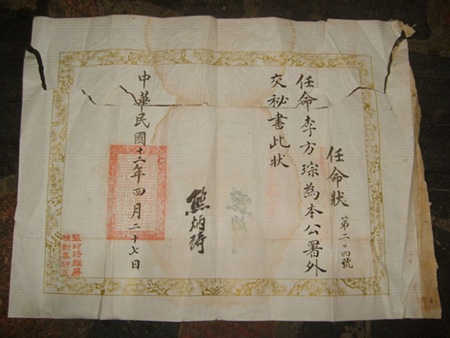 任命狀
第二〇四號
任命李方琮為本公署外
交秘書此狀
熊炳琦
中華民國十二年四月二十七日
監印